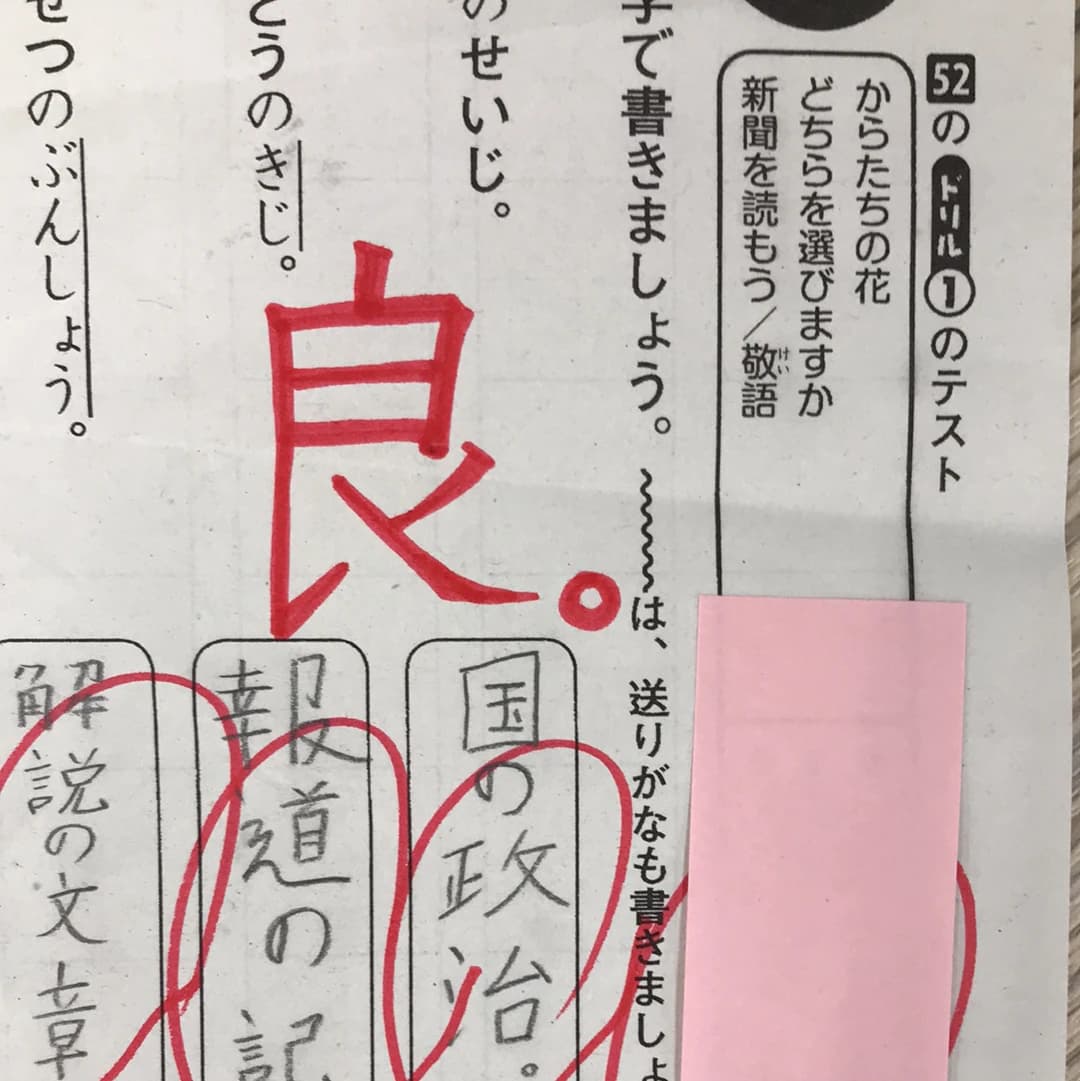 52のドリル1のテスト
からたちの花
どちらを選びますか
新聞を読もう/敬語
けい
字で書きましょう。
は、送りがなも書きましょ
のせいじ。
国の政治。
どうのきじ。
報道の記
せつのぶんしょう。
解説の文章
良。